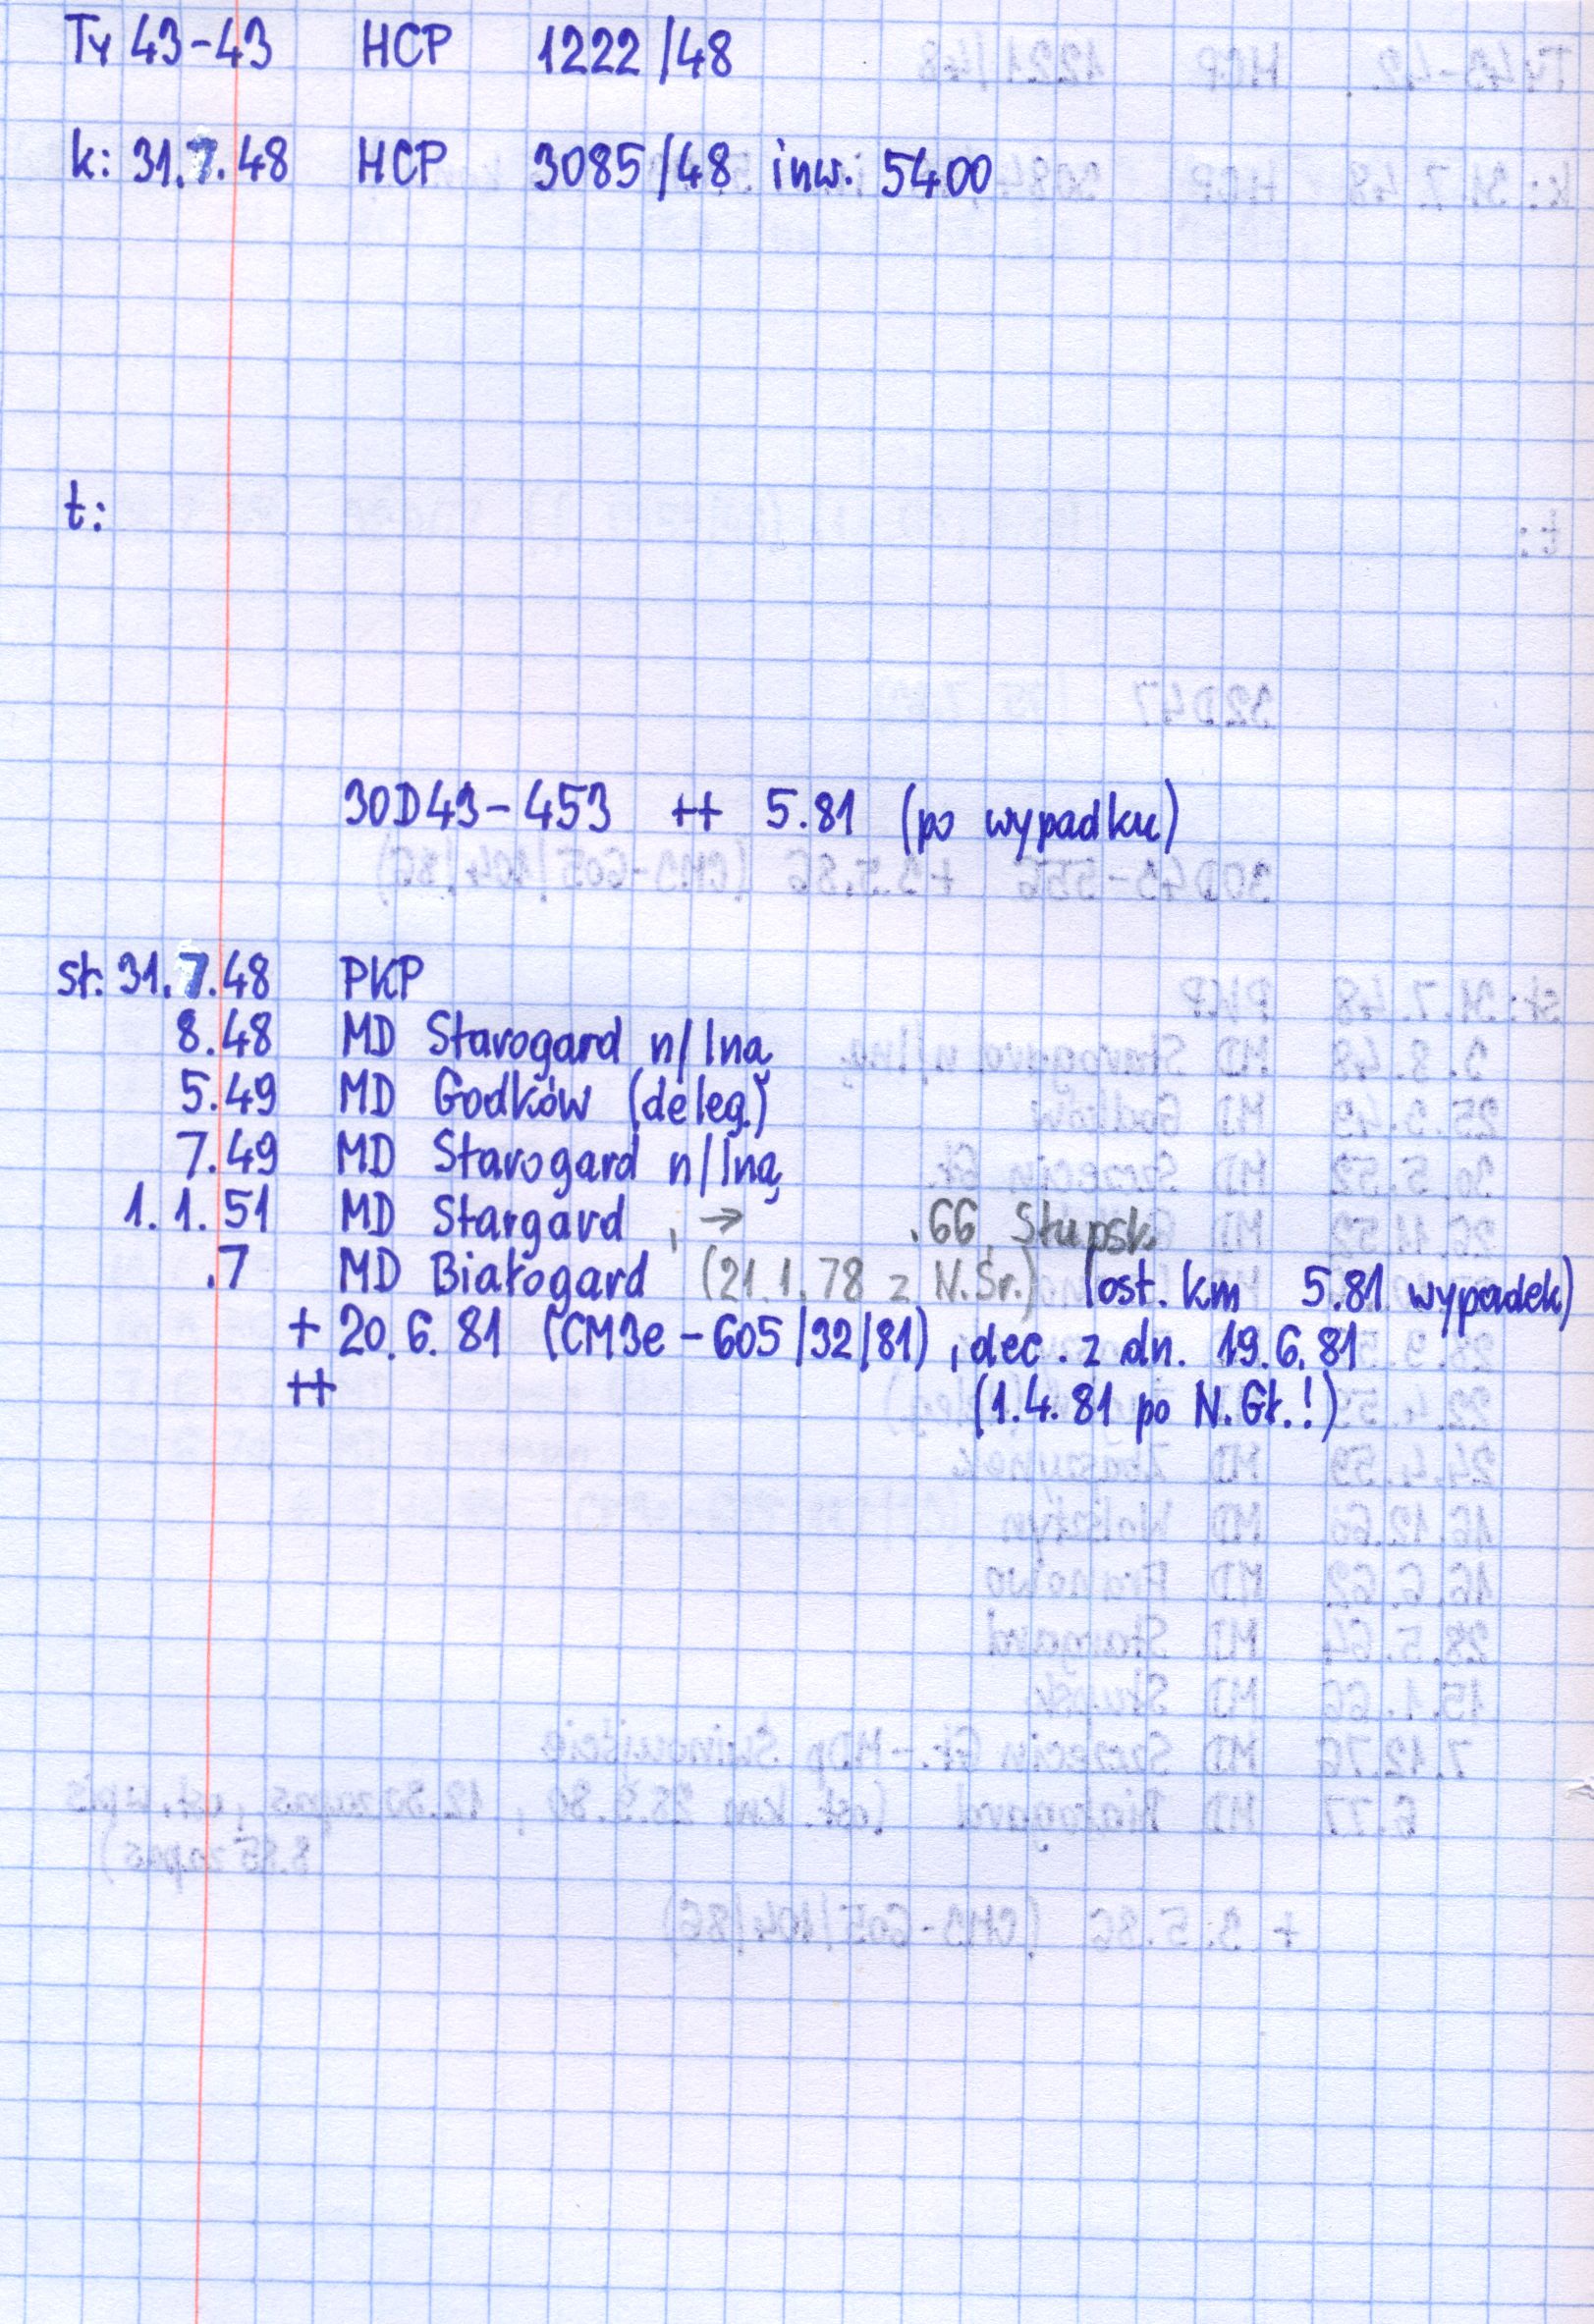 Ty 43-43 HCP 1222/48
k: 31.7.48 HCP 3085/48 inw. 5400
t:
30D43-453 ++ 5.81 (po wypadku)
st: 31.7.48 PKP
8.48 MD Starogard n/Iną
5.49 MD Godków (deleg.)
7.49 MD Starogard n/Iną
1.1.51 MD Stargard , → .66 Słupsk
.7 MD Białogard (21.1.78 z N.Śr.) (ost. km 5.81 wypadek)
+ 20.6.81 (CM3e-605/32/81), dec. z dn. 19.6.81
++ (1.4.81 po N.Gł.!)